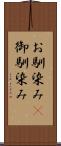 お馴染み
御馴染み